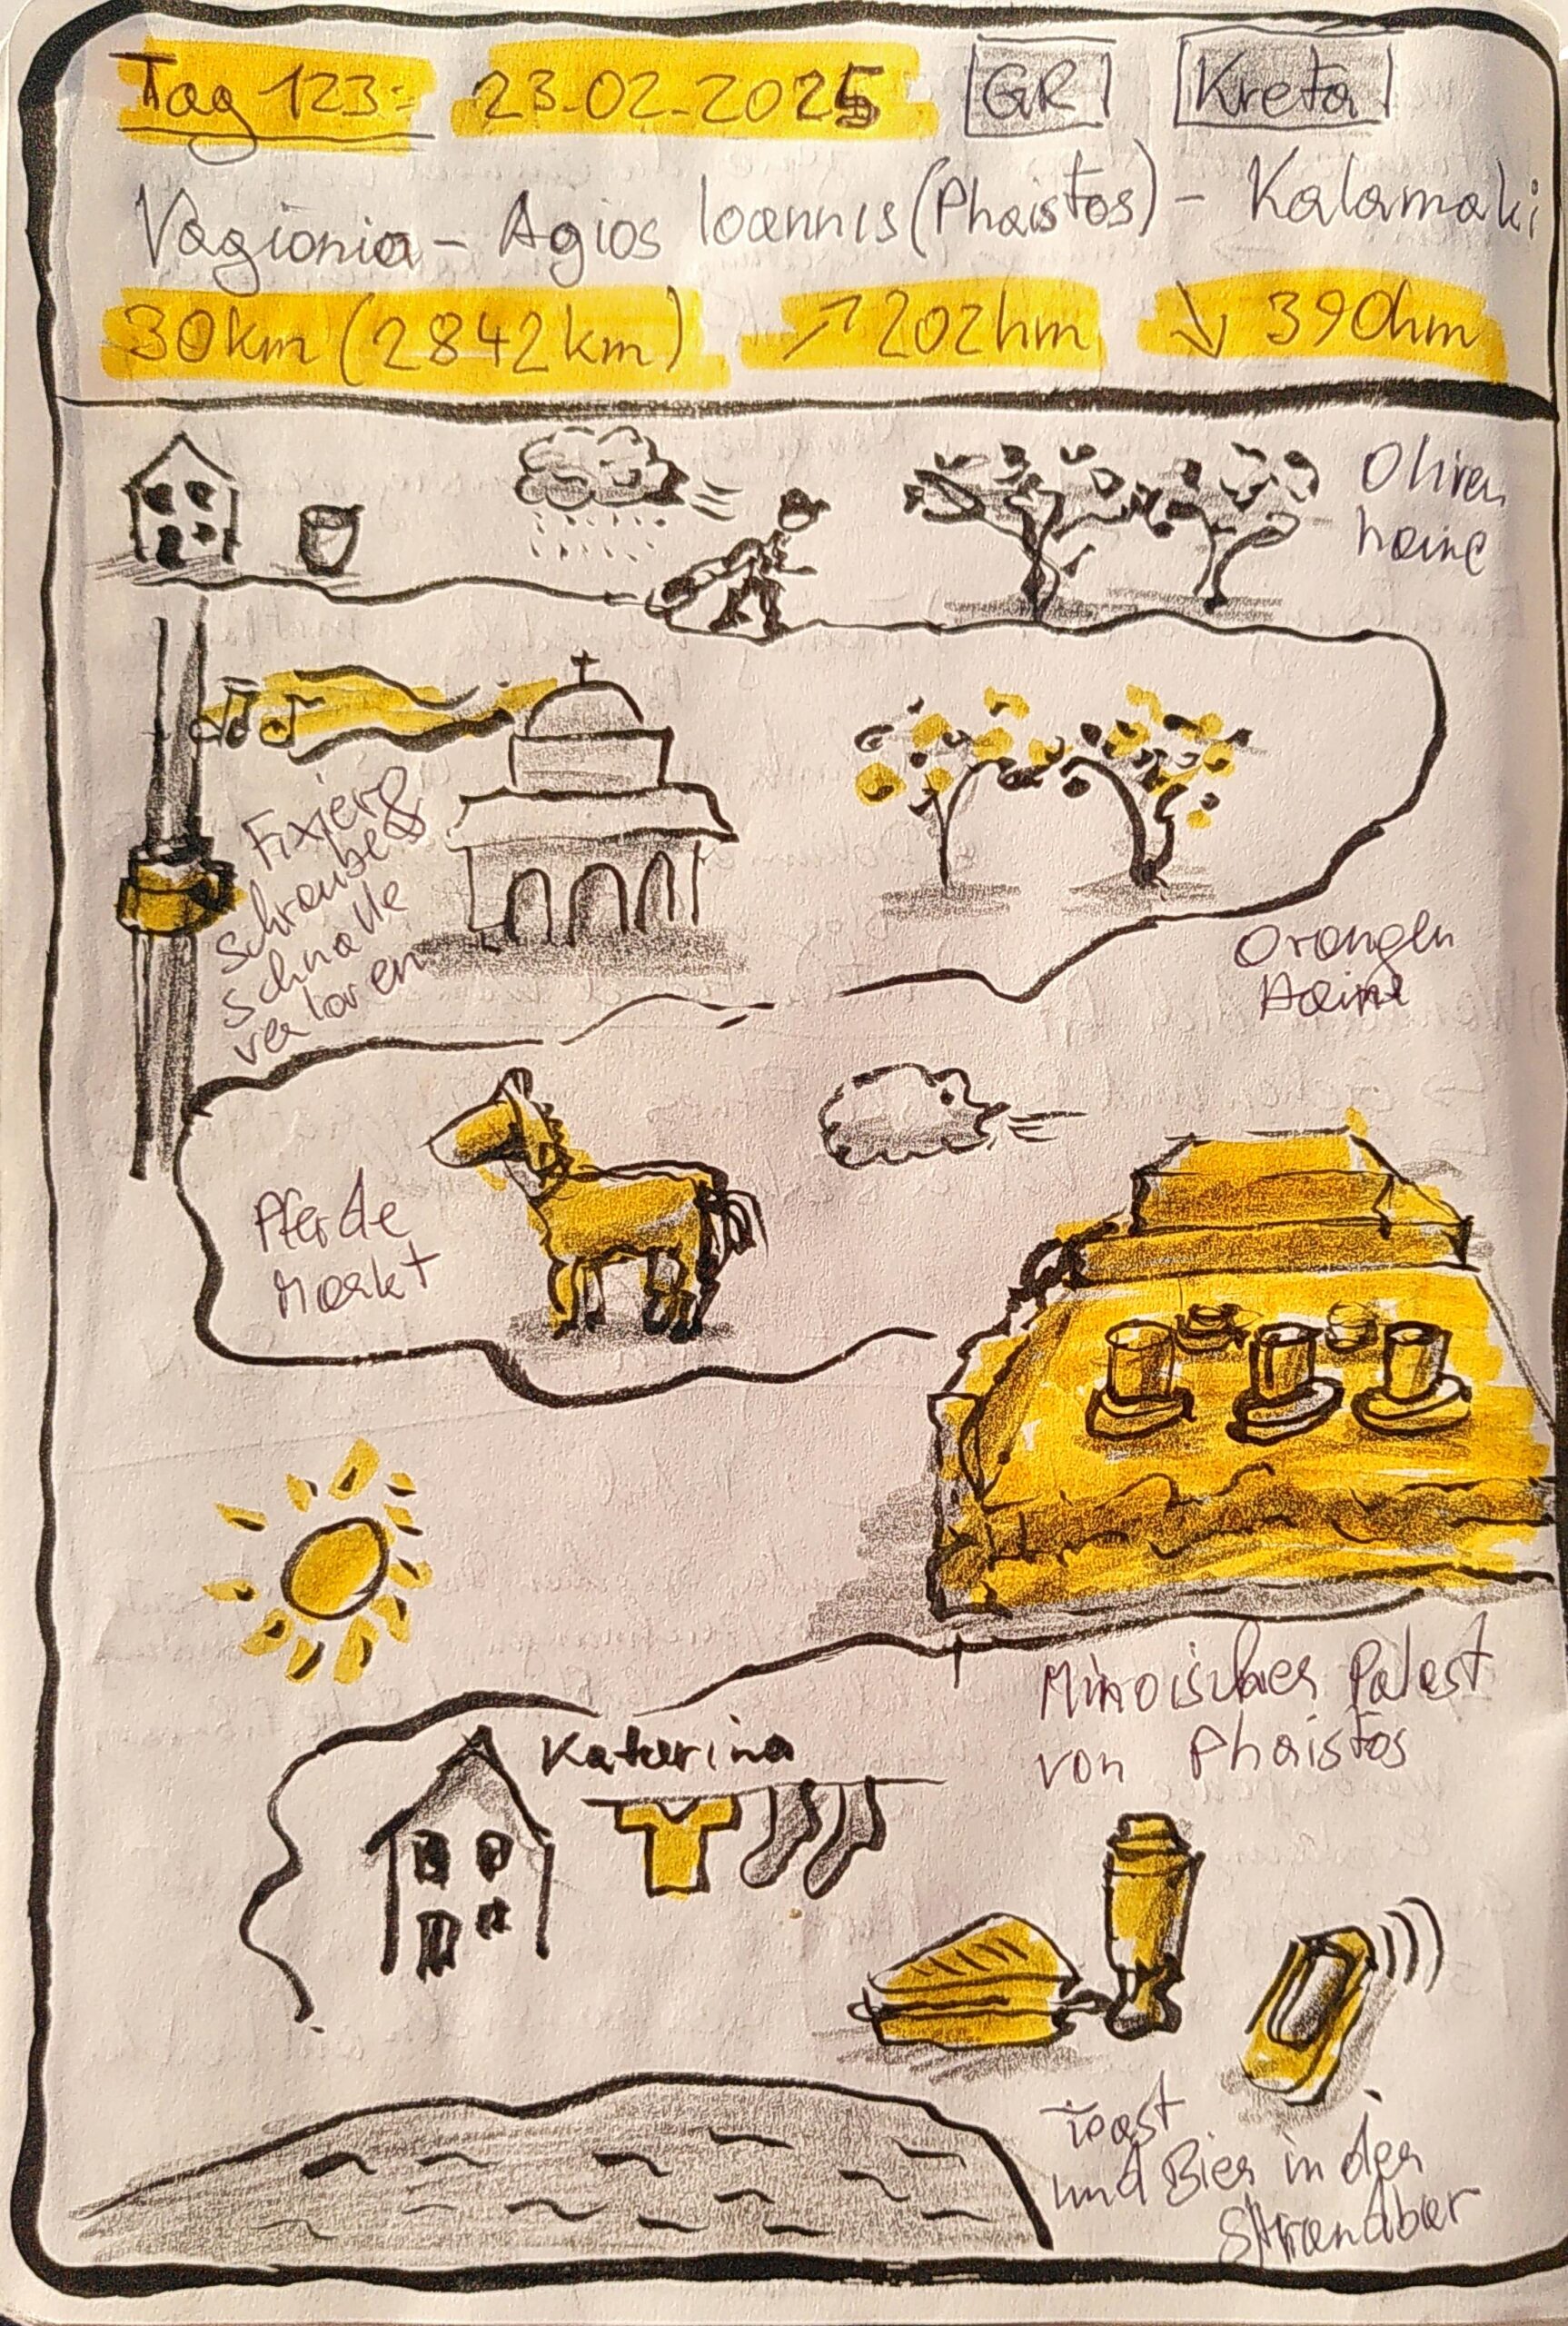 Tag 123: 23.02.2025 GR Kreta
Vagionia - Agios Ioannis (Phaistos) - Kalamaki
30km (2842km) ↗ 202hm ↘ 390hm
Oliven
haine
Fixier
schraube &
schnalle
verloren
Orangen
Haine
Pferde
Markt
Minoischer Palast
von Phaistos
Katarina
Toast
und Bier in der
Strandbar